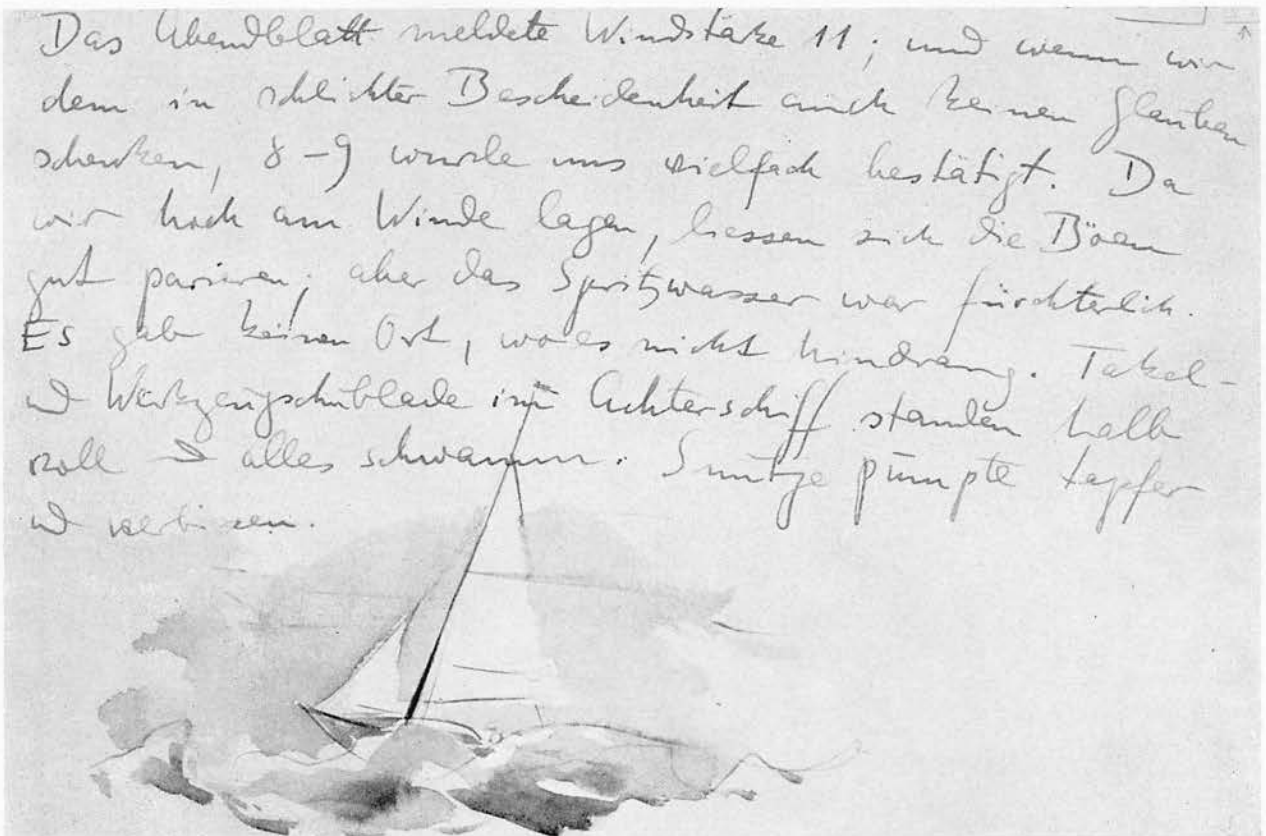 Das Abendblatt meldete Windstärke 11; und wenn wir
dem in schlichter Bescheidenheit auch keinen Glauben
schenken, 8–9 wurde uns vielfach bestätigt. Da
wir hoch am Winde lagen, liessen sich die Böen
gut parieren; aber das Spritzwasser war fürchterlich.
Es gab keinen Ort, wo es nicht hindrang. Takel-
und Werkzeugschublade im Achterschiff standen halb
voll und alles schwamm. pumpte tapfer
und verbissen.